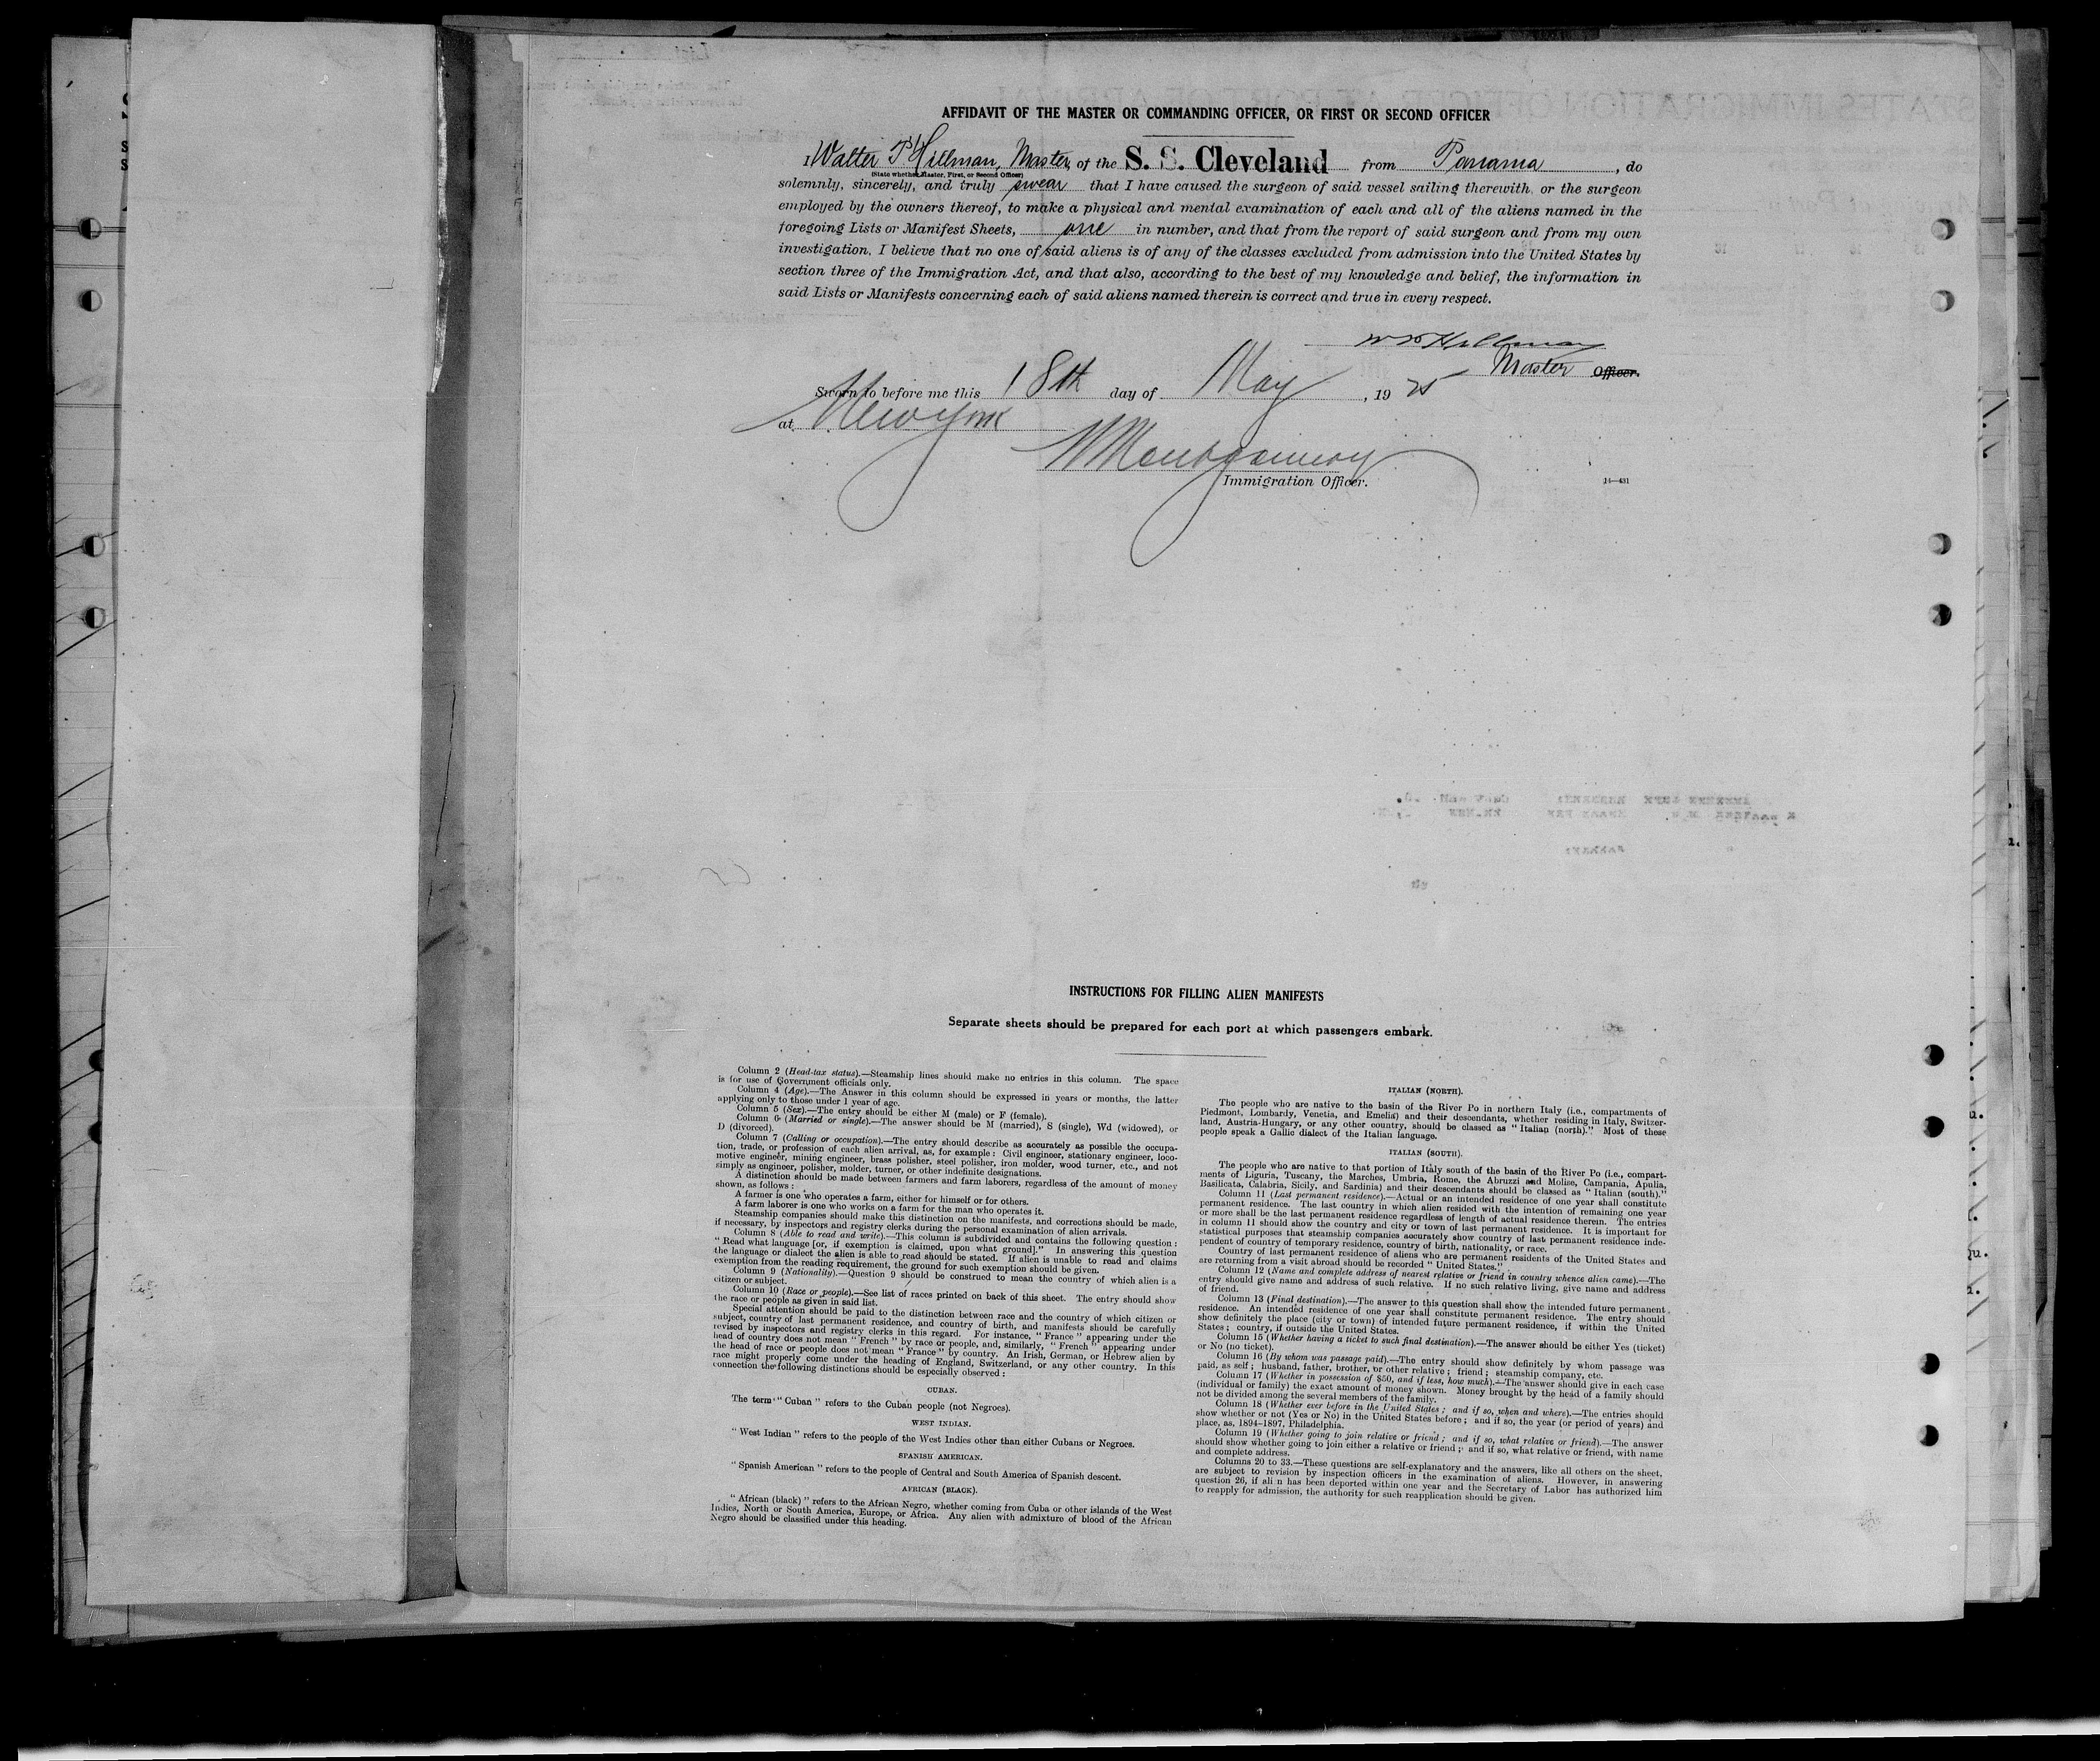 AFFIDAVIT OF THE MASTER OR COMMANDING OFFICER, OR FIRST OR SECOND OFFICER
I Walter P Hillman, Master, of the S. S. Cleveland from Panama, do
(State whether Master, First, or Second Officer)
solemnly, sincerely, and truly swear that I have caused the surgeon of said vessel sailing therewith, or the surgeon
employed by the owners thereof, to make a physical and mental examination of each and all of the aliens named in the
foregoing Lists or Manifest Sheets, one in number, and that from the report of said surgeon and from my own
investigation, I believe that no one of said aliens is of any of the classes excluded from admission into the United States by
section three of the Immigration Act, and that also, according to the best of my knowledge and belief, the information in
said Lists or Manifests concerning each of said aliens named therein is correct and true in every respect.
W P Hillman
Master Officer.
Sworn to before me this 18th day of May, 1925
at New York
Montgomery
Immigration Officer.
14—431
INSTRUCTIONS FOR FILLING ALIEN MANIFESTS
Separate sheets should be prepared for each port at which passengers embark.
Column 2 (Head-tax status).—Steamship lines should make no entries in this column. The space
is for use of Government officials only.
Column 4 (Age).—The Answer in this column should be expressed in years or months, the latter
applying only to those under 1 year of age.
Column 5 (Sex).—The entry should be either M (male) or F (female).
Column 6 (Married or single).—The answer should be M (married), S (single), Wd (widowed), or
D (divorced).
Column 7 (Calling or occupation).—The entry should describe as accurately as possible the occupa-
tion, trade, or profession of each alien arrival, as, for example: Civil engineer, stationary engineer, loco-
motive engineer, mining engineer, brass polisher, steel polisher, iron molder, wood turner, etc., and not
simply as engineer, polisher, molder, turner, or other indefinite designations.
A distinction should be made between farmers and farm laborers, regardless of the amount of money
shown, as follows:
A farmer is one who operates a farm, either for himself or for others.
A farm laborer is one who works on a farm for the man who operates it.
Steamship companies should make this distinction on the manifests, and corrections should be made,
if necessary, by inspectors and registry clerks during the personal examination of alien arrivals.
Column 8 (Able to read and write).—This column is subdivided and contains the following question:
"Read what language [or, if exemption is claimed, upon what ground]." In answering this question
the language or dialect the alien is able to read should be stated. If alien is unable to read and claims
exemption from the reading requirement, the ground for such exemption should be given.
Column 9 (Nationality).—Question 9 should be construed to mean the country of which alien is a
citizen or subject.
Column 10 (Race or people).—See list of races printed on back of this sheet. The entry should show
the race or people as given in said list.
Special attention should be paid to the distinction between race and the country of which citizen or
subject, country of last permanent residence, and country of birth, and manifests should be carefully
revised by inspectors and registry clerks in this regard. For instance, "France" appearing under the
head of country does not mean "French" by race or people, and, similarly, "French" appearing under
the head of race or people does not mean "France" by country. An Irish, German, or Hebrew alien by
race might properly come under the heading of England, Switzerland, or any other country. In this
connection the following distinctions should be especially observed:
CUBAN.
The term "Cuban" refers to the Cuban people (not Negroes).
WEST INDIAN.
"West Indian" refers to the people of the West Indies other than either Cubans or Negroes.
SPANISH AMERICAN.
"Spanish American" refers to the people of Central and South America of Spanish descent.
AFRICAN (BLACK).
"African (black)" refers to the African Negro, whether coming from Cuba or other islands of the West
Indies, North or South America, Europe, or Africa. Any alien with admixture of blood of the African
Negro should be classified under this heading.
ITALIAN (NORTH).
The people who are native to the basin of the River Po in northern Italy (i.e., compartments of
Piedmont, Lombardy, Venetia, and Emelia) and their descendants, whether residing in Italy, Switzer-
land, Austria-Hungary, or any other country, should be classed as "Italian (north)." Most of these
people speak a Gallic dialect of the Italian language.
ITALIAN (SOUTH).
The people who are native to that portion of Italy south of the basin of the River Po (i.e., compart-
ments of Liguria, Tuscany, the Marches, Umbria, Rome, the Abruzzi and Molise, Campania, Apulia,
Basilicata, Calabria, Sicily, and Sardinia) and their descendants should be classed as "Italian (south)."
Column 11 (Last permanent residence).—Actual or an intended residence of one year shall constitute
permanent residence. The last country in which alien resided with the intention of remaining one year
or more shall be the last permanent residence regardless of length of actual residence therein. The entries
in column 11 should show the country and city or town of last permanent residence. It is important for
statistical purposes that steamship companies accurately show country of last permanent residence inde-
pendent of country of temporary residence, country of birth, nationality, or race.
Country of last permanent residence of aliens who are permanent residents of the United States and
are returning from a visit abroad should be recorded "United States."
Column 12 (Name and complete address of nearest relative or friend in country whence alien came).—The
entry should give name and address of such relative. If no such relative living, give name and address
of friend.
Column 13 (Final destination).—The answer to this question shall show the intended future permanent
residence. An intended residence of one year shall constitute permanent residence. The entry should
show definitely the place (city or town) of intended future permanent residence, if within the United
States; country, if outside the United States.
Column 15 (Whether having a ticket to such final destination).—The answer should be either Yes (ticket)
or No (no ticket).
Column 16 (By whom was passage paid).—The entry should show definitely by whom passage was
paid, as self; husband, father, brother, or other relative; friend; steamship company, etc.
Column 17 (Whether in possession of $50, and if less, how much).—The answer should give in each case
(individual or family) the exact amount of money shown. Money brought by the head of a family should
not be divided among the several members of the family.
Column 18 (Whether ever before in the United States; and if so, when and where).—The entries should
show whether or not (Yes or No) in the United States before; and if so, the year (or period of years) and
place, as, 1894-1897, Philadelphia.
Column 19 (Whether going to join relative or friend; and if so, what relative or friend).—The answer
should show whether going to join either a relative or friend; and if so, what relative or friend, with name
and complete address.
Columns 20 to 33.—These questions are self-explanatory and the answers, like all others on the sheet,
are subject to revision by inspection officers in the examination of aliens. However, in answering
question 26, if ali n has been deported within one year and the Secretary of Labor has authorized him
to reapply for admission, the authority for such reapplication should be given.